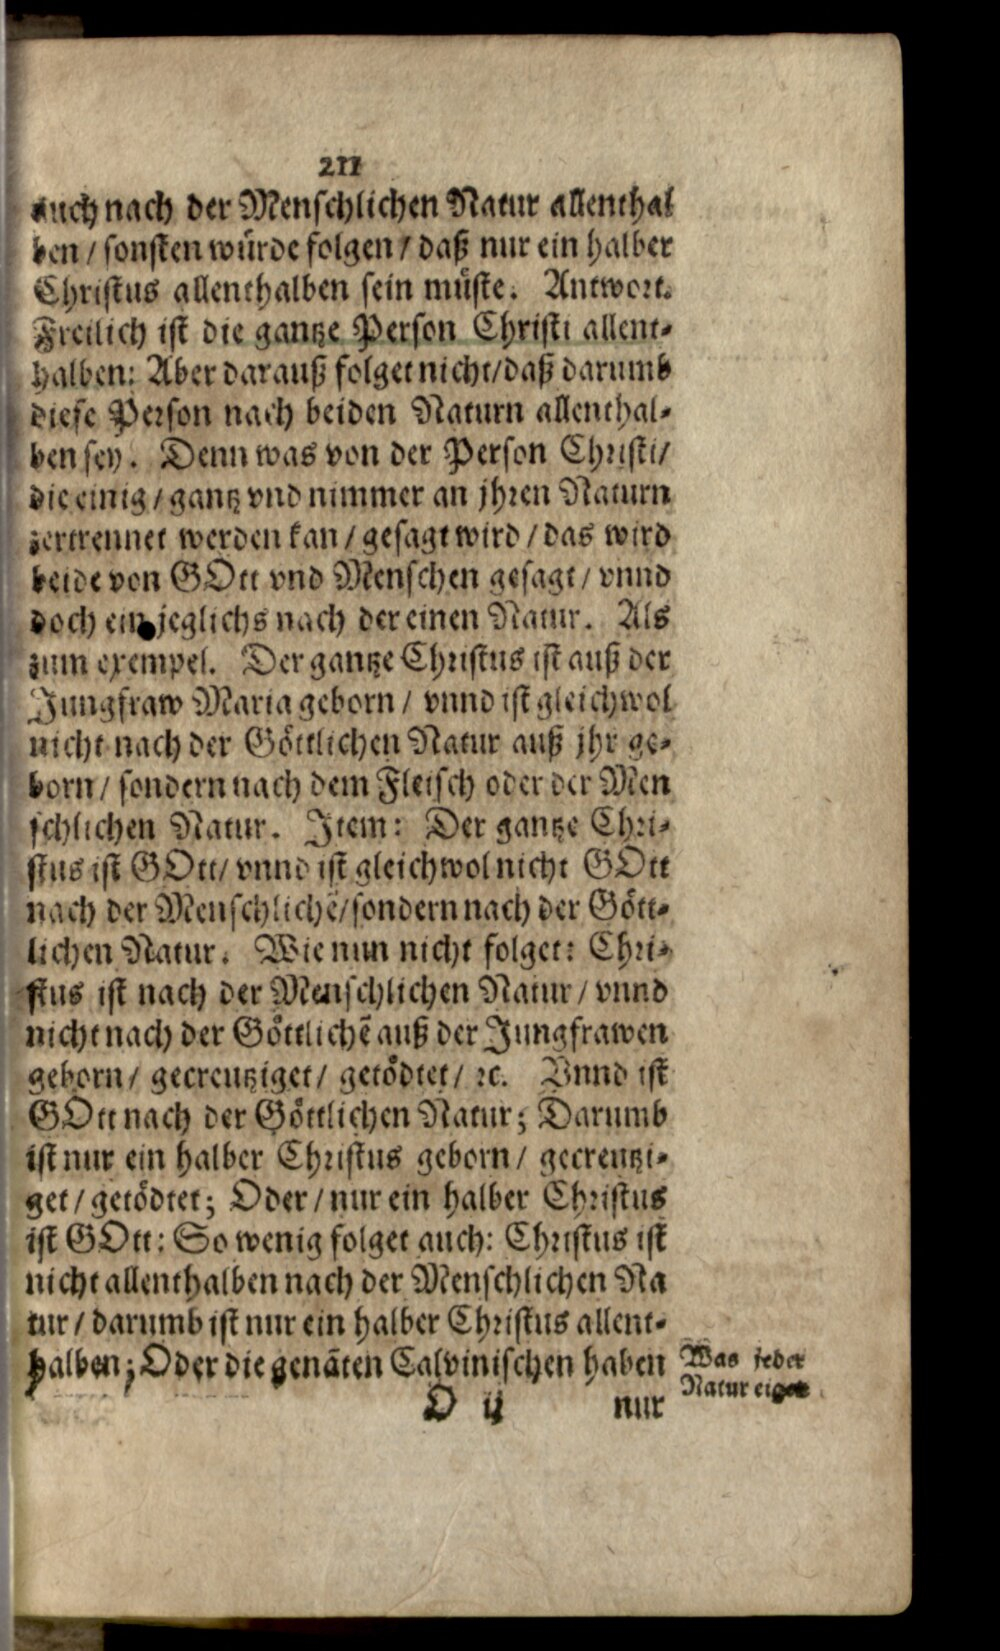 211
auch nach der Menschlichen Natur allenthal
ben / sonsten würde folgen / daß nur ein halber
Christus allenthalben sein müste. Antwort.
Freilich ist die gantze Person Christi allent-
halben: Aber darauß folget nicht/daß darumb
diese Person nach beiden Naturn allenthal-
ben sey. Denn was von der Person Christi/
die einig / gantz vnd nimmer an jhren Naturn
zertrennet werden kan / gesagt wird / das wird
beide von GOtt vnd Menschen gesagt / vnnd
doch ein jeglichs nach der einen Natur. Als
zum exempel. Der gantze Christus ist auß der
Jungfraw Maria geborn / vnnd ist gleichwol
nicht nach der Göttlichen Natur auß jhr ge-
born / sondern nach dem Fleisch oder der Men
schlichen Natur. Item: Der gantze Chri-
stus ist GOtt/ vnnd ist gleichwol nicht GOtt
nach der Menschlichẽ/sondern nach der Gött-
lichen Natur. Wie nun nicht folget: Chri-
stus ist nach der Menschlichen Natur / vnnd
nicht nach der Göttlichẽ auß der Jungfrawen
geborn / gecreutziget / getödtet / ꝛc. Vnnd ist
GOtt nach der Göttlichen Natur; Darumb
ist nur ein halber Christus geborn / gecreutzi-
get / getödtet; Oder / nur ein halber Christus
ist GOtt: So wenig folget auch: Christus ist
nicht allenthalben nach der Menschlichen Na
tur / darumb ist nur ein halber Christus allent-
halben; Oder die genãten Calvinischen haben
Was jeder
Natur eigen
O ij nur